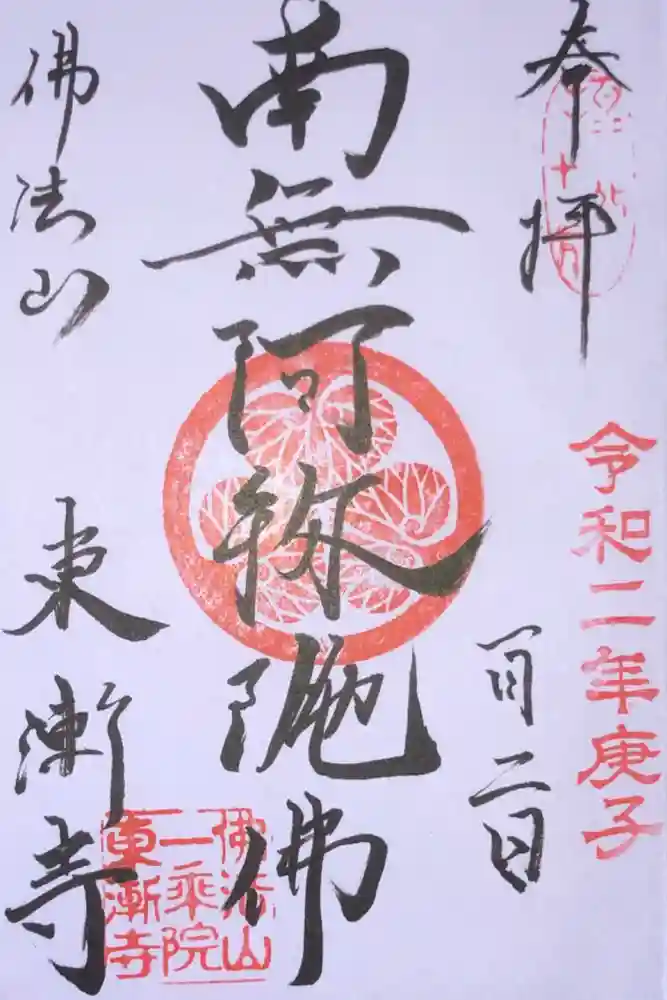 奉拝
令和二年庚子
一月二日
南無阿弥陀佛
佛法山
東漸寺
佛法山
一乗院
東漸寺